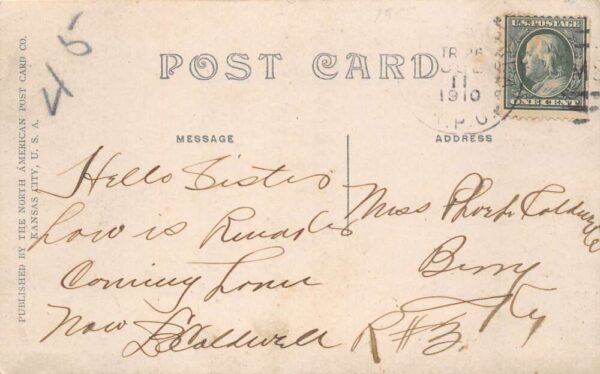 45
POST CARD
TR 26
JUL
11
1910
R.P.O.
U.S. POSTAGE
ONE CENT
PUBLISHED BY THE NORTH AMERICAN POST CARD CO.
KANSAS CITY, U. S. A.
MESSAGE
Hello Sister
how is
Coming home
now LCaldwell
ADDRESS
Miss Phoebe Caldwell
Berry
Ky
R#3.